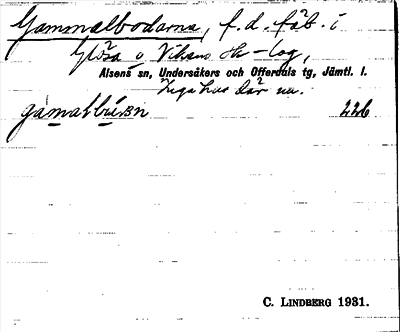 Gammalbodarna, f.d. fäb. i
Glösa o. Vikens sk-lag,
Alsens sn, Undersåkers och Offerdals tg, Jämtl. l.
Inga hus där nu.
gàmalbúɴ 226
C. LINDBERG 1931.